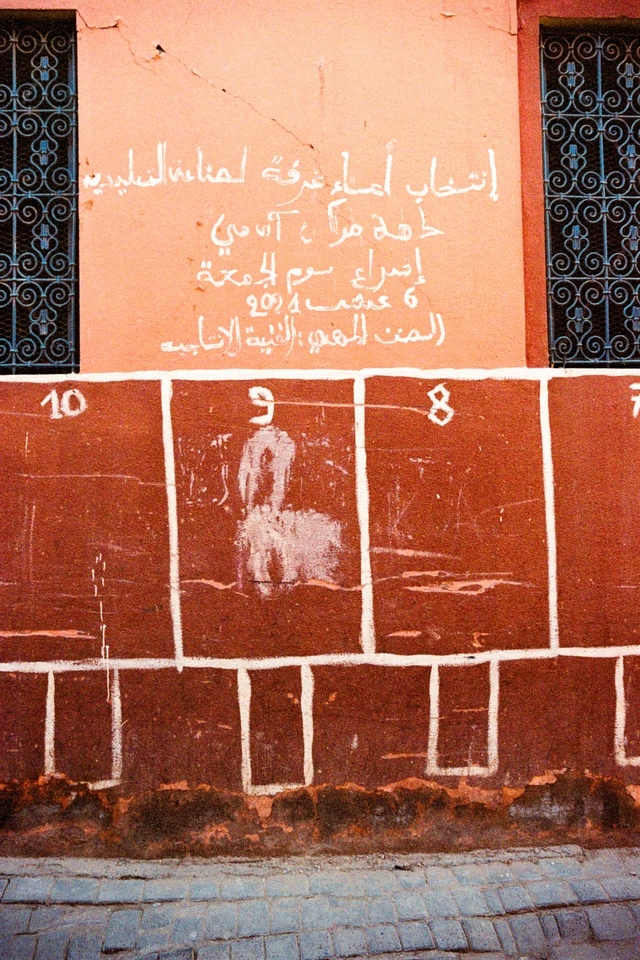 إنتخاب أعضاء غرفة الصناعة التقليدية
جهة مراكش آسفي
إقتراع يوم الجمعة
6 غشت 2021
الصنف المهني: الفنية الإنتاجية
10 9 8 7